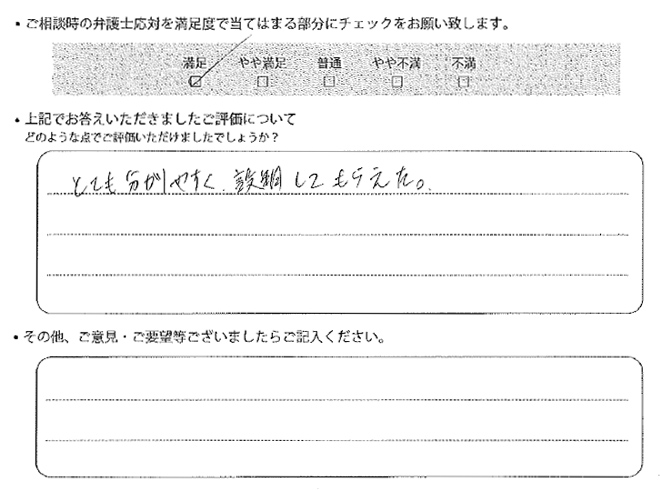 ・ご相談時の弁護士応対を満足度で当てはまる部分にチェックをお願い致します。
満足 やや満足 普通 やや不満 不満
☑ □ □ □ □
・上記でお答えいただきましたご評価について
どのような点でご評価いただけましたでしょうか？
とても分かりやすく、説明してもらえた。
・その他、ご意見・ご要望等ございましたらご記入ください。